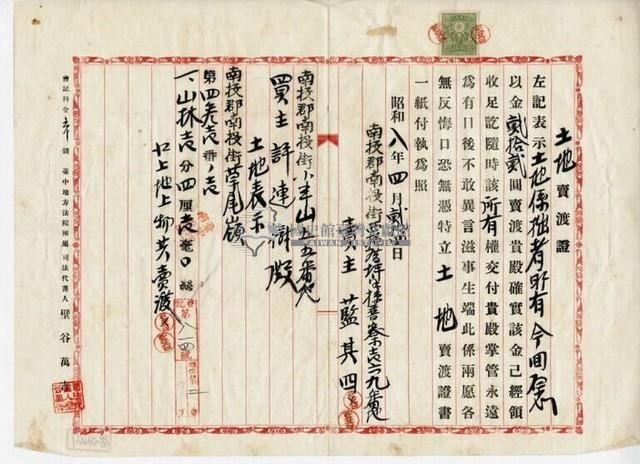 土地賣渡證
左記表示土地係拙者所有今間願
以金貳拾貳圓賣渡貴殿確實該金已經領
收足訖隨時該所有權交付貴殿掌管永遠
為有日後不敢異言滋事生端此係兩愿各
無反悔口恐無憑特立土地賣渡證書
一紙付執為照
昭和八年四月貳日
南投郡南投街
賣主 藍其四
南投郡南投街小半山五五番地
買主 許連 殿
土地表示
南投郡南投街草尾嶺
第四
一、山林 分四厘 毫
上地上物共賣渡
第八一四號
登記料金 錢 臺中地方法院所屬 司法代書人 壁谷萬